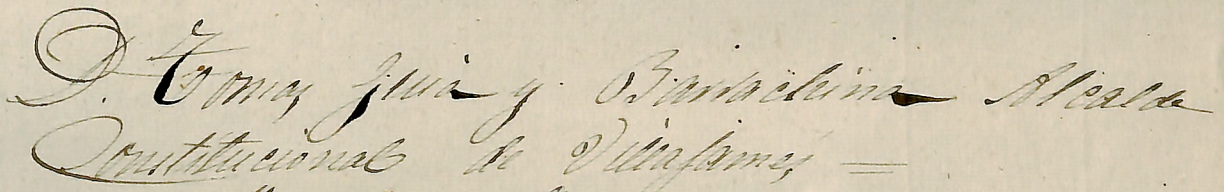 D. Tomas Juià y Barrachina Alcalde
Constitucional de Villafames, =